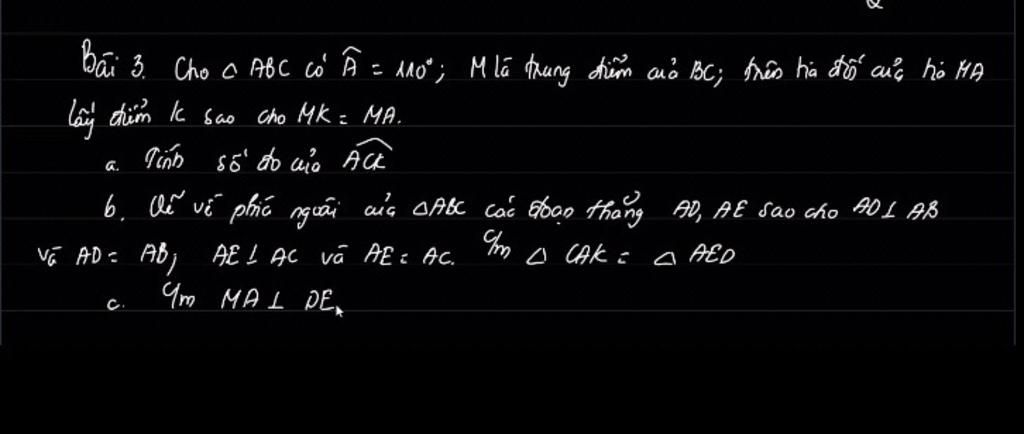 Bài 3. Cho △ ABC có Â = 110°; M là trung điểm của BC; trên tia đối của tia MA
lấy điểm K sao cho MK = MA.
a. Tính số đo của ACK
b. Vẽ về phía ngoài của △ABC các đoạn thẳng AD, AE sao cho AD ⊥ AB
và AD = AB; AE ⊥ AC và AE = AC. Cm △ CAK = △ AED
c. Cm MA ⊥ DE.